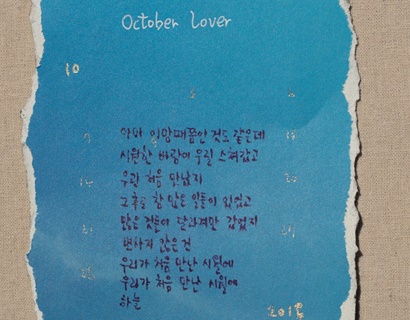 October Lover
10
아마 이맘때쯤인 것도 같은데
시원한 바람이 우릴 스쳐갔고
우린 처음 만났지
그 후로 참 많은 일들이 있었고
많은 것들이 달라져만 갔었지
변하지 않은 건
우리가 처음 만난 시월에
우리가 처음 만난 시월에
하늘